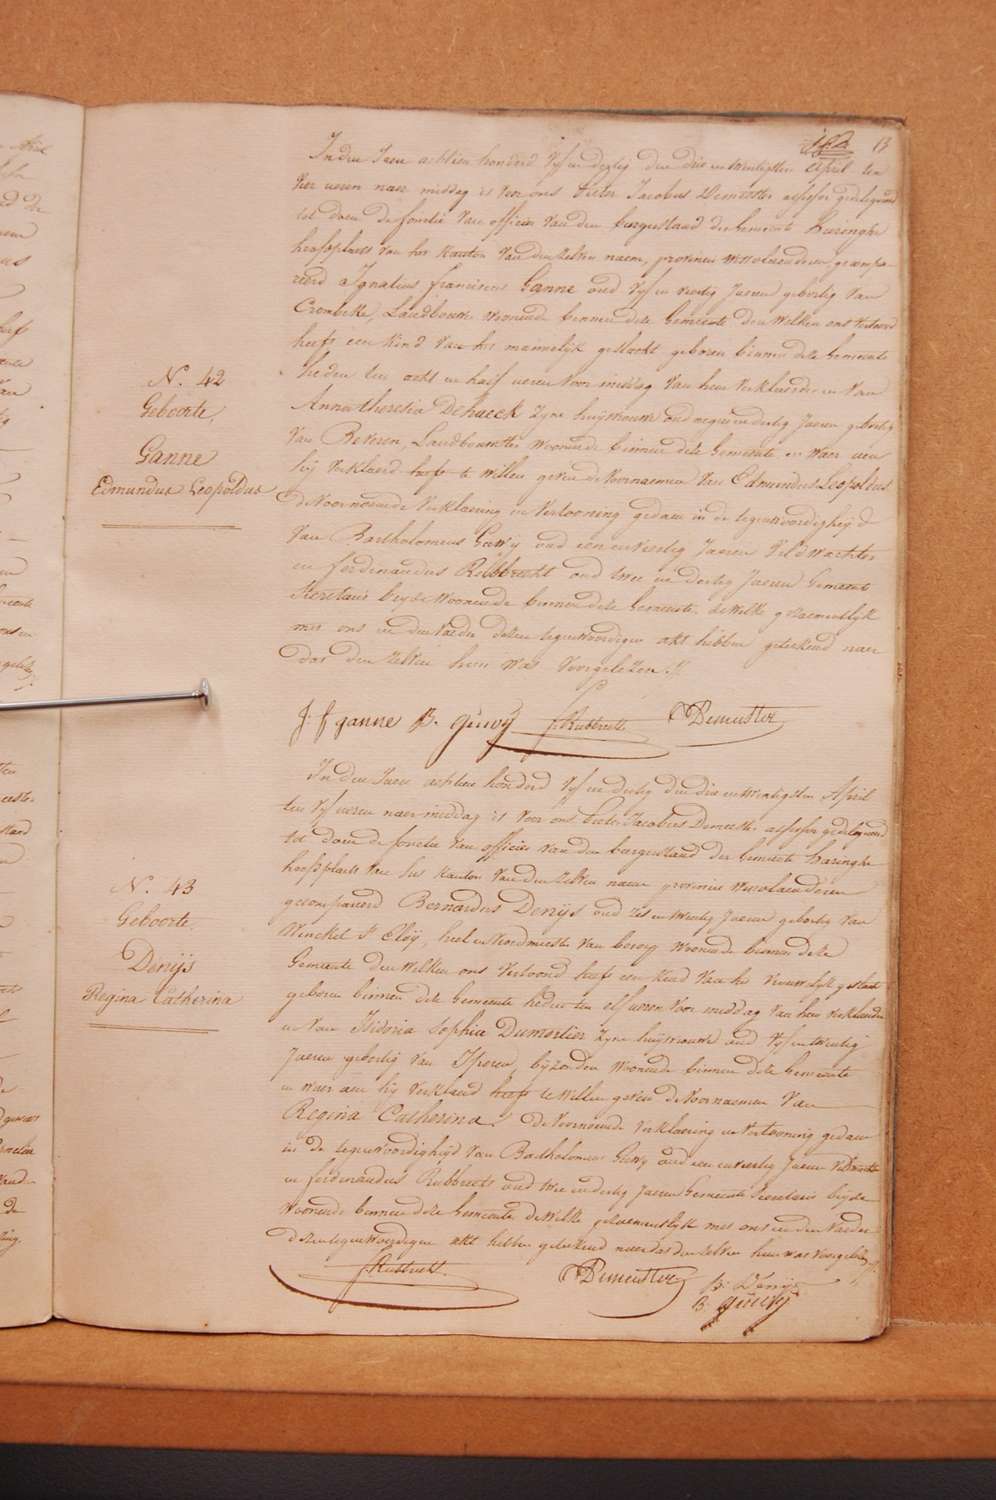 13
In den Jaere achtien honderd vyf en dertig den drie en twintigsten April ten
vier ueren naer middag is voor ons Pieter Jacobus Demeester assessor gedelegeerd
tot doen de fonctie van officier van den burgerstaand der Gemeente Haringhe
hoofdplaets van het Kanton van den zelven naem, provincie westvlaenderen gecompa-
reerd Ignatius franciscus Ganne oud vyf en veertig Jaeren geboortig van
Crombeke, Landbouwer woonende binnen deze Gemeente den welken ons vertoond
heeft een kind van het mannelyk geslacht geboren binnen deze Gemeente
heden ten acht en half ueren voor middag van hem verklaerder en van
Anna theresia Dehaeck zyne huysvrouwe oud negen en dertig Jaeren geboortig
van Beveren Landbouwster woonende binnen deze Gemeente en waer aen
hij verklaerd heeft te willen geven de voornaemen van Edmundus Leopoldus
de voornoemde verklaering en vertooning gedaen in de tegenwoordigheyd
van Bartholomeus Geuvij oud een en veertig Jaeren veldwachter
en ferdinandus Rubbrecht oud twee en dertig Jaeren Gemeente
secretaris beyde woonende binnen deze Gemeente. de welke gezaementlyk
met ons en den vaeder dezen tegenwoordigen akt hebben geteekend naer
dat den zelven hun was voorgelezen ./.
N. 42
Geboorte,
Ganne
Edmundus Leopoldus
J: f ganne B. geuvij f. Rubbrecht Demeester
In den Jaere achtien honderd vyf en dertig den drie en twintigsten April
ten vyf ueren naer middag is voor ons Pieter Jacobus Demeester assessor gedelegeerd
tot doen de fonctie van officier van den burgerstaand der Gemeente Haringhe
hoofdplaets van het Kanton van den zelven naem provincie westvlaenderen
gecompareerd Bernardus Denijs oud zes en twintig Jaeren geboortig van
Winckel St Eloÿ, heel en vroedmeester van beroep woonende binnen deze
Gemeente den welken ons vertoond heeft een kind van het vrouwelyk geslacht
geboren binnen deze Gemeente heden ten elf ueren voor middag van hem verklaerder
en van Isidoria Sophia Dumortier zyne huysvrouwe oud vyf en twintig
Jaeren geboortig van Iperen, byzonder woonende binnen deze Gemeente
en waer aen hij verklaerd heeft te willen geven de voornaemen van
Regina Catherina. de voornoemde verklaering en vertooning gedaen
in de tegenwoordigheyd van Bartholomeus Geuvij oud een en veertig Jaeren veldwachter
en ferdinandus Rubbrecht oud twee en dertig Jaeren Gemeente secretaris beyde
woonende binnen deze Gemeente de welke gezaementlyk met ons en den vaeder
dezen tegenwoordigen akt hebben geteekend naer dat den zelven hun was voorgelezen ./.
N. 43
Geboorte.
Denijs
Regina Catherina
f. Rubbrecht. Demeester B. Denijs
B. geuvij